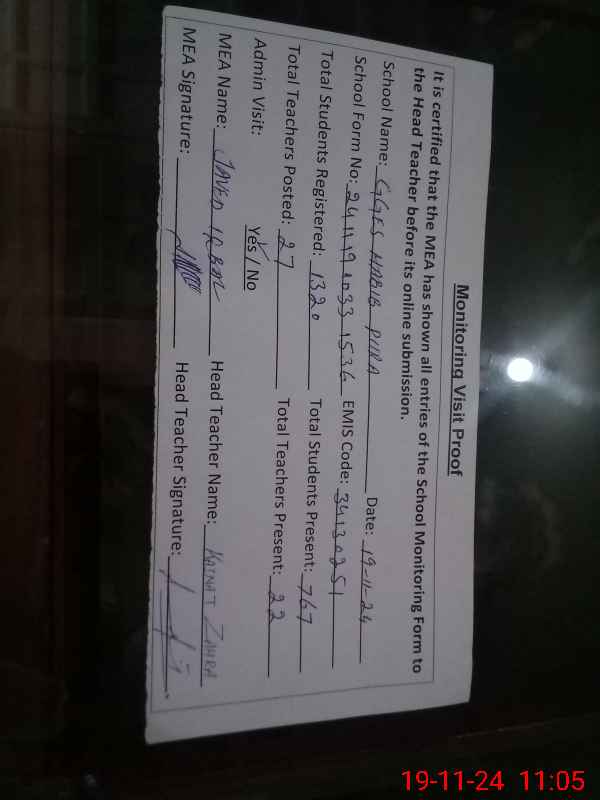 Monitoring Visit Proof
It is certified that the MEA has shown all entries of the School Monitoring Form to
the Head Teacher before its online submission.
School Name: GGES HABIB PURA Date: 19-11-24
School Form No: 241119 1033 1536 EMIS Code: 34130251
Total Students Registered: 1320 Total Students Present: 767
Total Teachers Posted: 27 Total Teachers Present: 22
Admin Visit: Yes / No
MEA Name: JAVED IQBAL Head Teacher Name: KAINAT ZAHRA
MEA Signature: Head Teacher Signature:
19-11-24 11:05